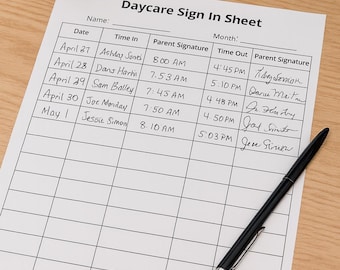 Daycare Sign In Sheet
Name: Month:
Date Time In Parent Signature Time Out Parent Signature
April 27 Ashley Jones 8:00 AM 4:45 PM
April 28 Dans 7:53 AM 5:10 PM
April 29 Sam Bailey 7:45 AM 4:48 PM
April 30 Joe Monday 7:50 AM 4:50 PM
May 1 Jessie Simon 8:10 AM 5:03 PM Jese Simon